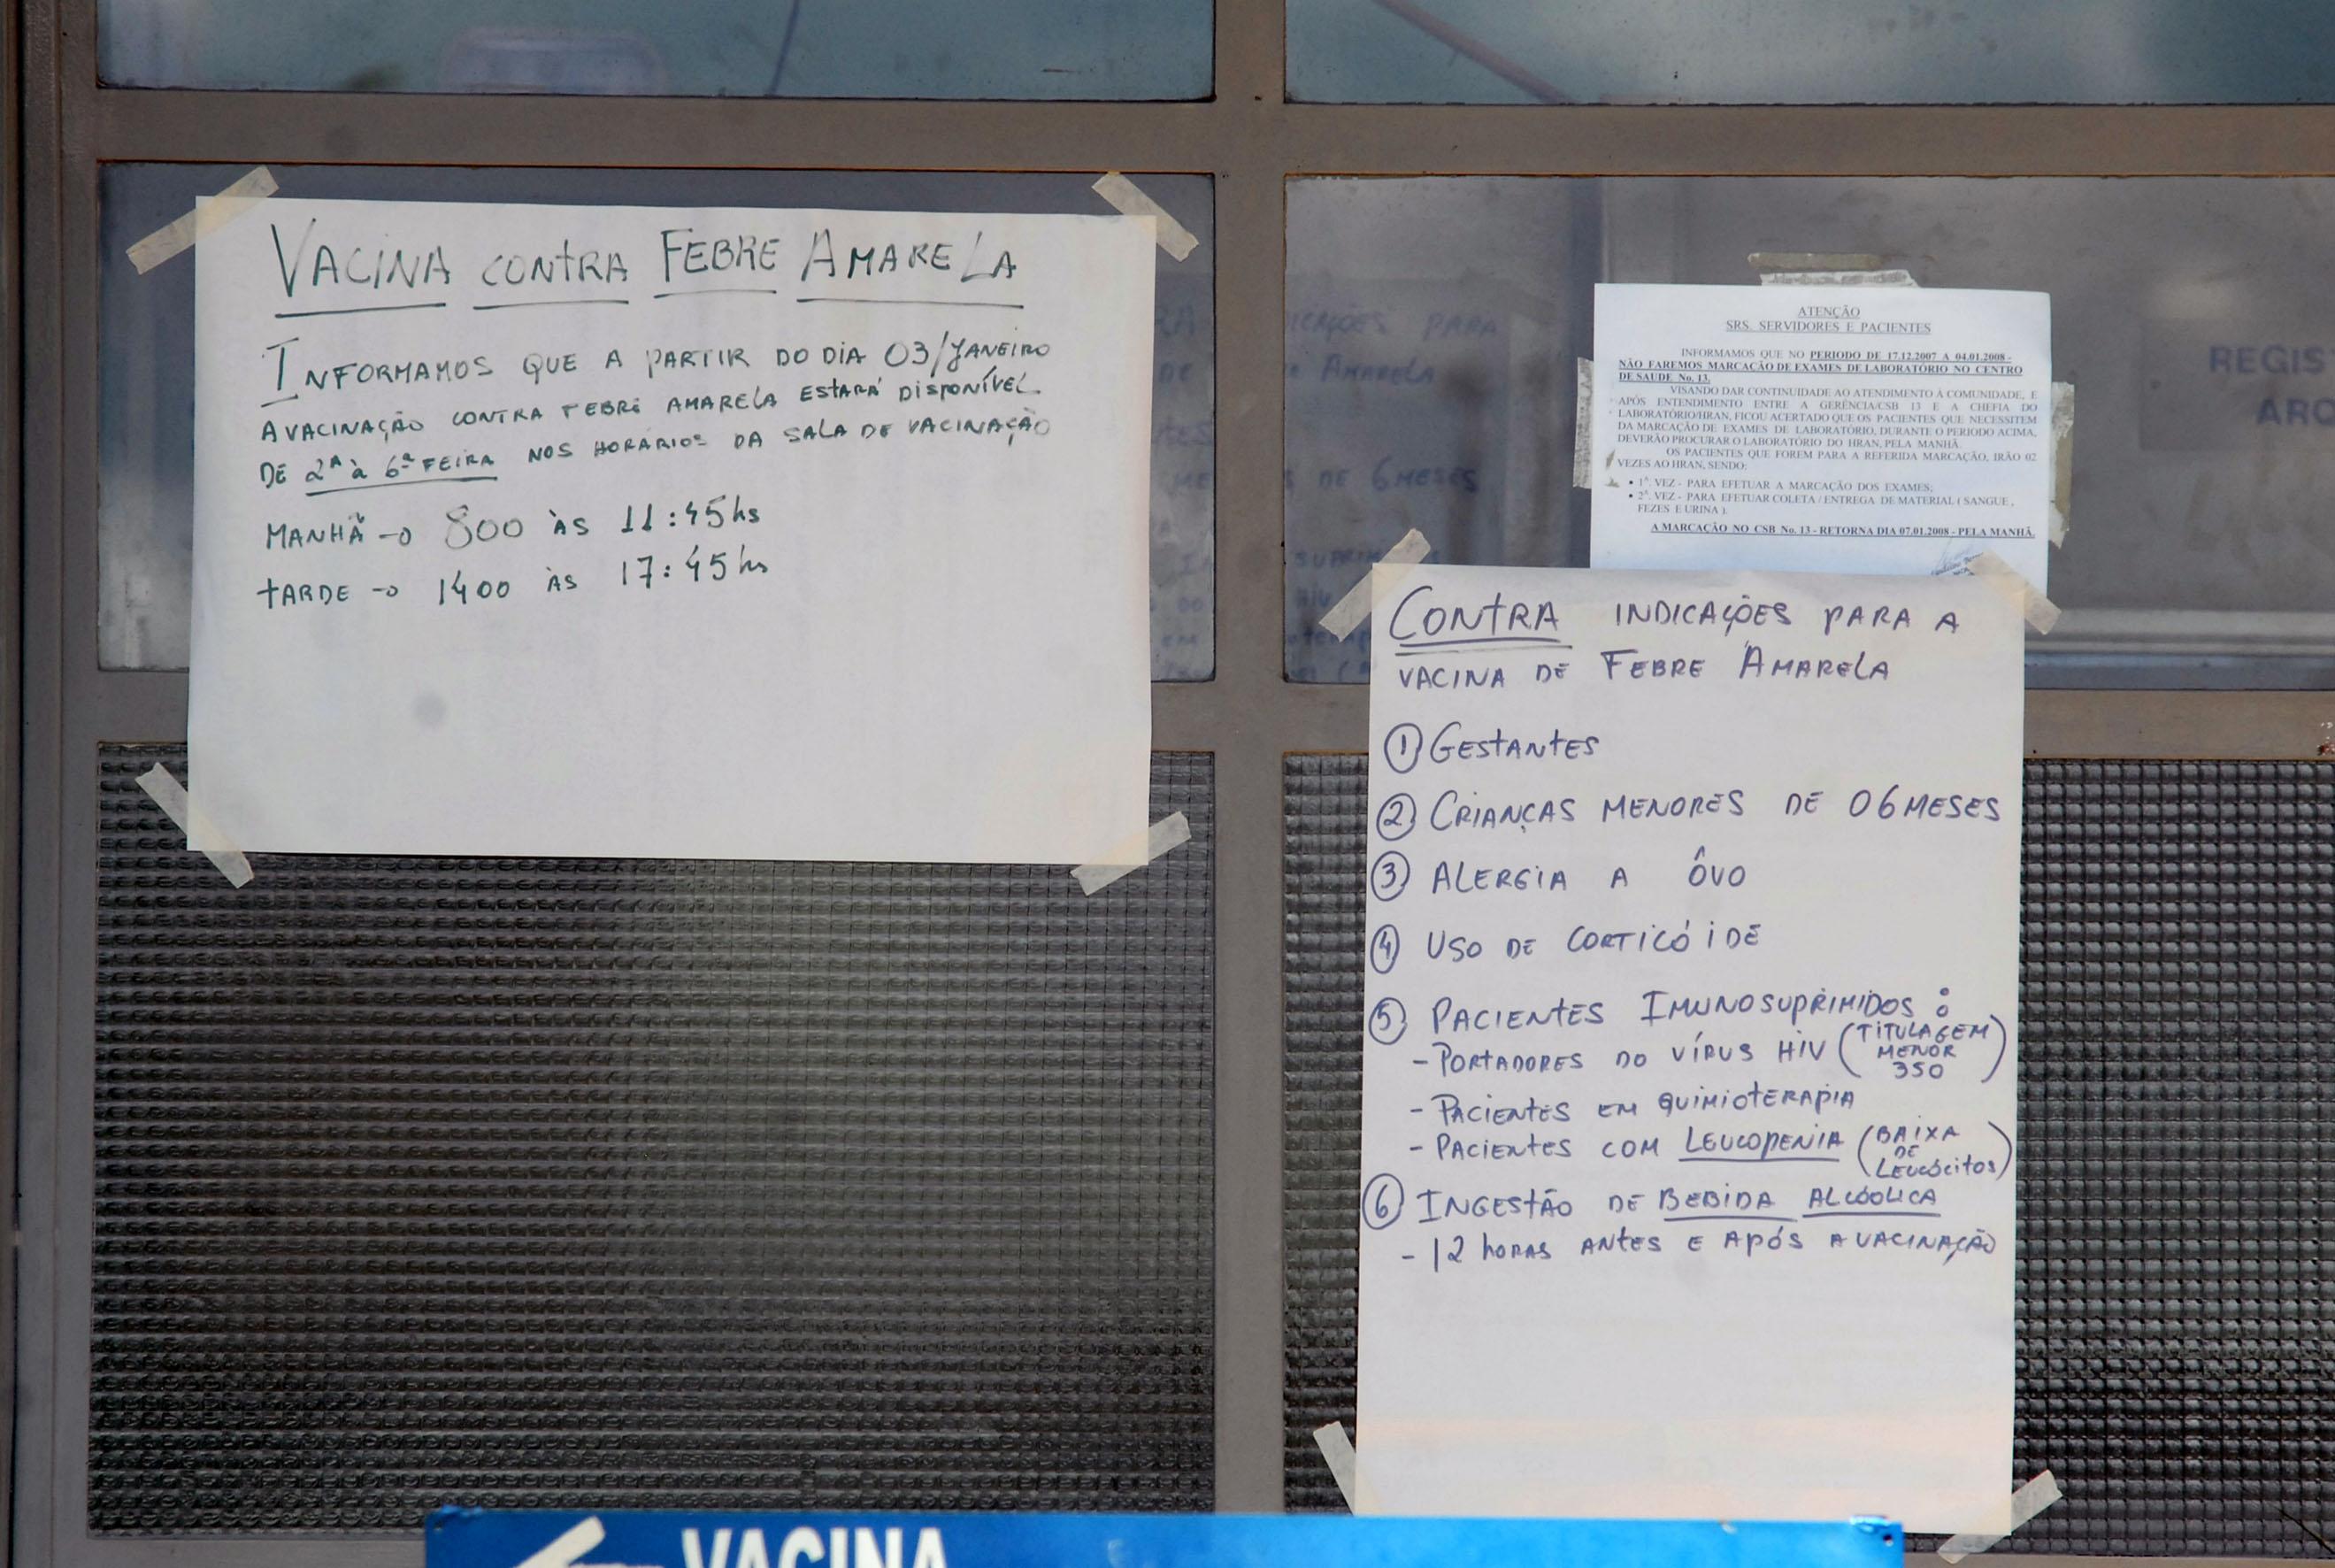 VACINA CONTRA FEBRE AMARELA
INFORMAMOS QUE A PARTIR DO DIA 03/JANEIRO
A VACINAÇÃO CONTRA FEBRE AMARELA ESTARÁ DISPONÍVEL
DE 2ª à 6ª FEIRA NOS HORÁRIOS DA SALA DE VACINAÇÃO
MANHÃ → 800 ÀS 11:45hs
TARDE → 1400 ÀS 17:45hs
ATENÇÃO
SRS. SERVIDORES E PACIENTES
INFORMAMOS QUE NO PERIODO DE 17.12.2007 A 04.01.2008 -
NÃO FAREMOS MARCAÇÃO DE EXAMES DE LABORATÓRIO NO CENTRO
DE SAUDE No. 13.
VISANDO DAR CONTINUIDADE AO ATENDIMENTO À COMUNIDADE, E
APÓS ENTENDIMENTO ENTRE A GERÊNCIA/CSB 13 E A CHEFIA DO
LABORATÓRIO/HRAN, FICOU ACERTADO QUE OS PACIENTES QUE NECESSITEM
DA MARCAÇÃO DE EXAMES DE LABORATÓRIO, DURANTE O PERIODO ACIMA,
DEVERÃO PROCURAR O LABORATÓRIO DO HRAN, PELA MANHÃ.
OS PACIENTES QUE FOREM PARA A REFERIDA MARCAÇÃO, IRÃO 02
VEZES AO HRAN, SENDO:
• 1ª. VEZ - PARA EFETUAR A MARCAÇÃO DOS EXAMES;
• 2ª. VEZ - PARA EFETUAR COLETA / ENTREGA DE MATERIAL ( SANGUE ,
FEZES E URINA ).
A MARCAÇÃO NO CSB No. 13 - RETORNA DIA 07.01.2008 - PELA MANHÃ.
REGIS
ARQ
CONTRA INDICAÇÕES PARA A
VACINA DE FEBRE AMARELA
① GESTANTES
② CRIANÇAS MENORES DE 06 MESES
③ ALERGIA A ÔVO
④ USO DE CORTICÓIDE
⑤ PACIENTES IMUNOSUPRIMIDOS:
- PORTADORES DO VÍRUS HIV (TITULAGEM
MENOR
350)
- PACIENTES EM QUIMIOTERAPIA
- PACIENTES COM LEUCOPENIA (BAIXA
DE
LEUCÓCITOS)
⑥ INGESTÃO DE BEBIDA ALCÓOLICA
- 12 horas ANTES E APÓS A VACINAÇÃO
VACINA